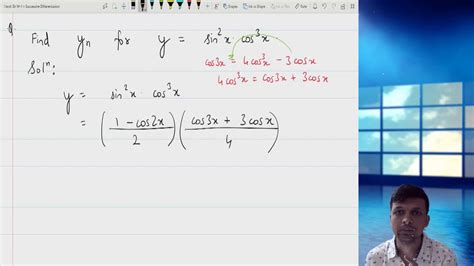 Q. Find yₙ for y = sin²x · cos³x
cos3x = 4cos³x − 3cosx
4cos³x = cos3x + 3cosx
Solⁿ:
y = sin²x · cos³x
= ((1 − cos2x)/2) ((cos3x + 3cosx)/4)